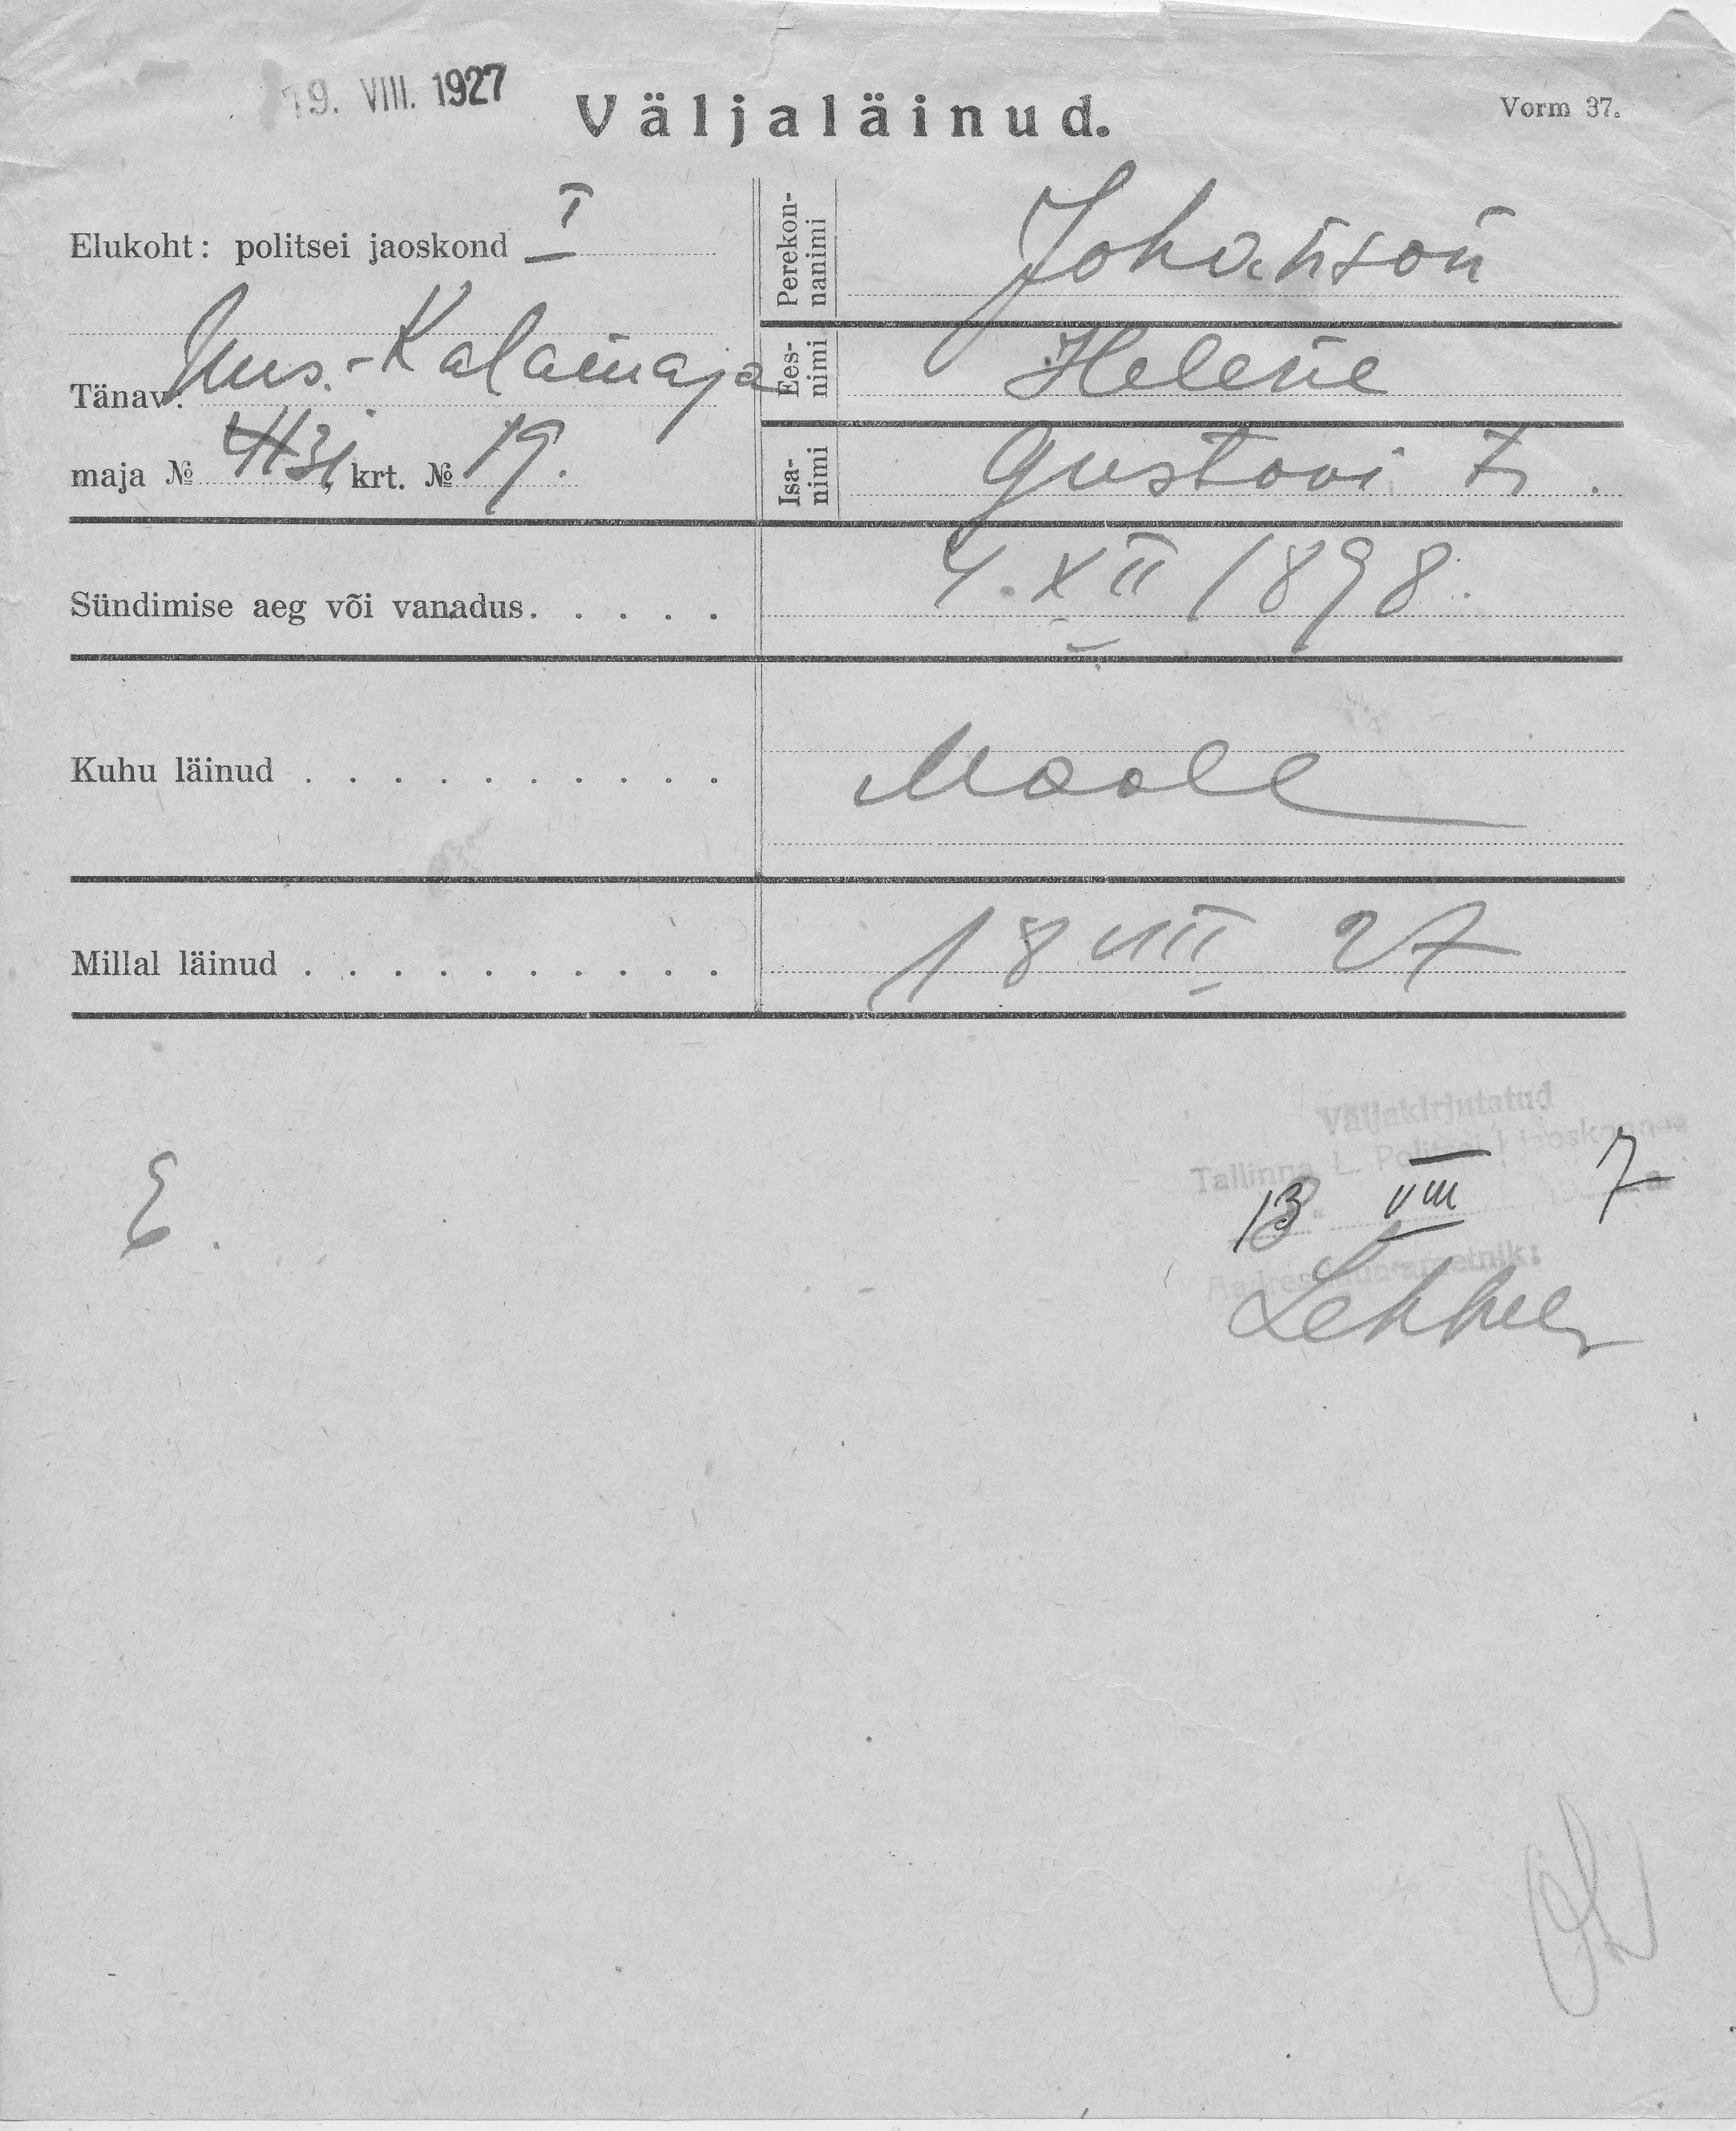 19. VIII. 1927
Väljaläinud.
Vorm 37.
Elukoht: politsei jaoskond I
Tänav: Uus-Kalamaja
maja № 31, krt. № 19.
Perekon-
nanimi
Johanson
Ees-
nimi
Helene
Isa-
nimi
Gustavi t.
Sündimise aeg või vanadus.....
4. XII 1898.
Kuhu läinud..........
Maale
Millal läinud..........
18 VIII 27
Väljakirjutatud
Tallinna L. Politsei I jaoskonnas
18 VIII 7
ametnik:
E.